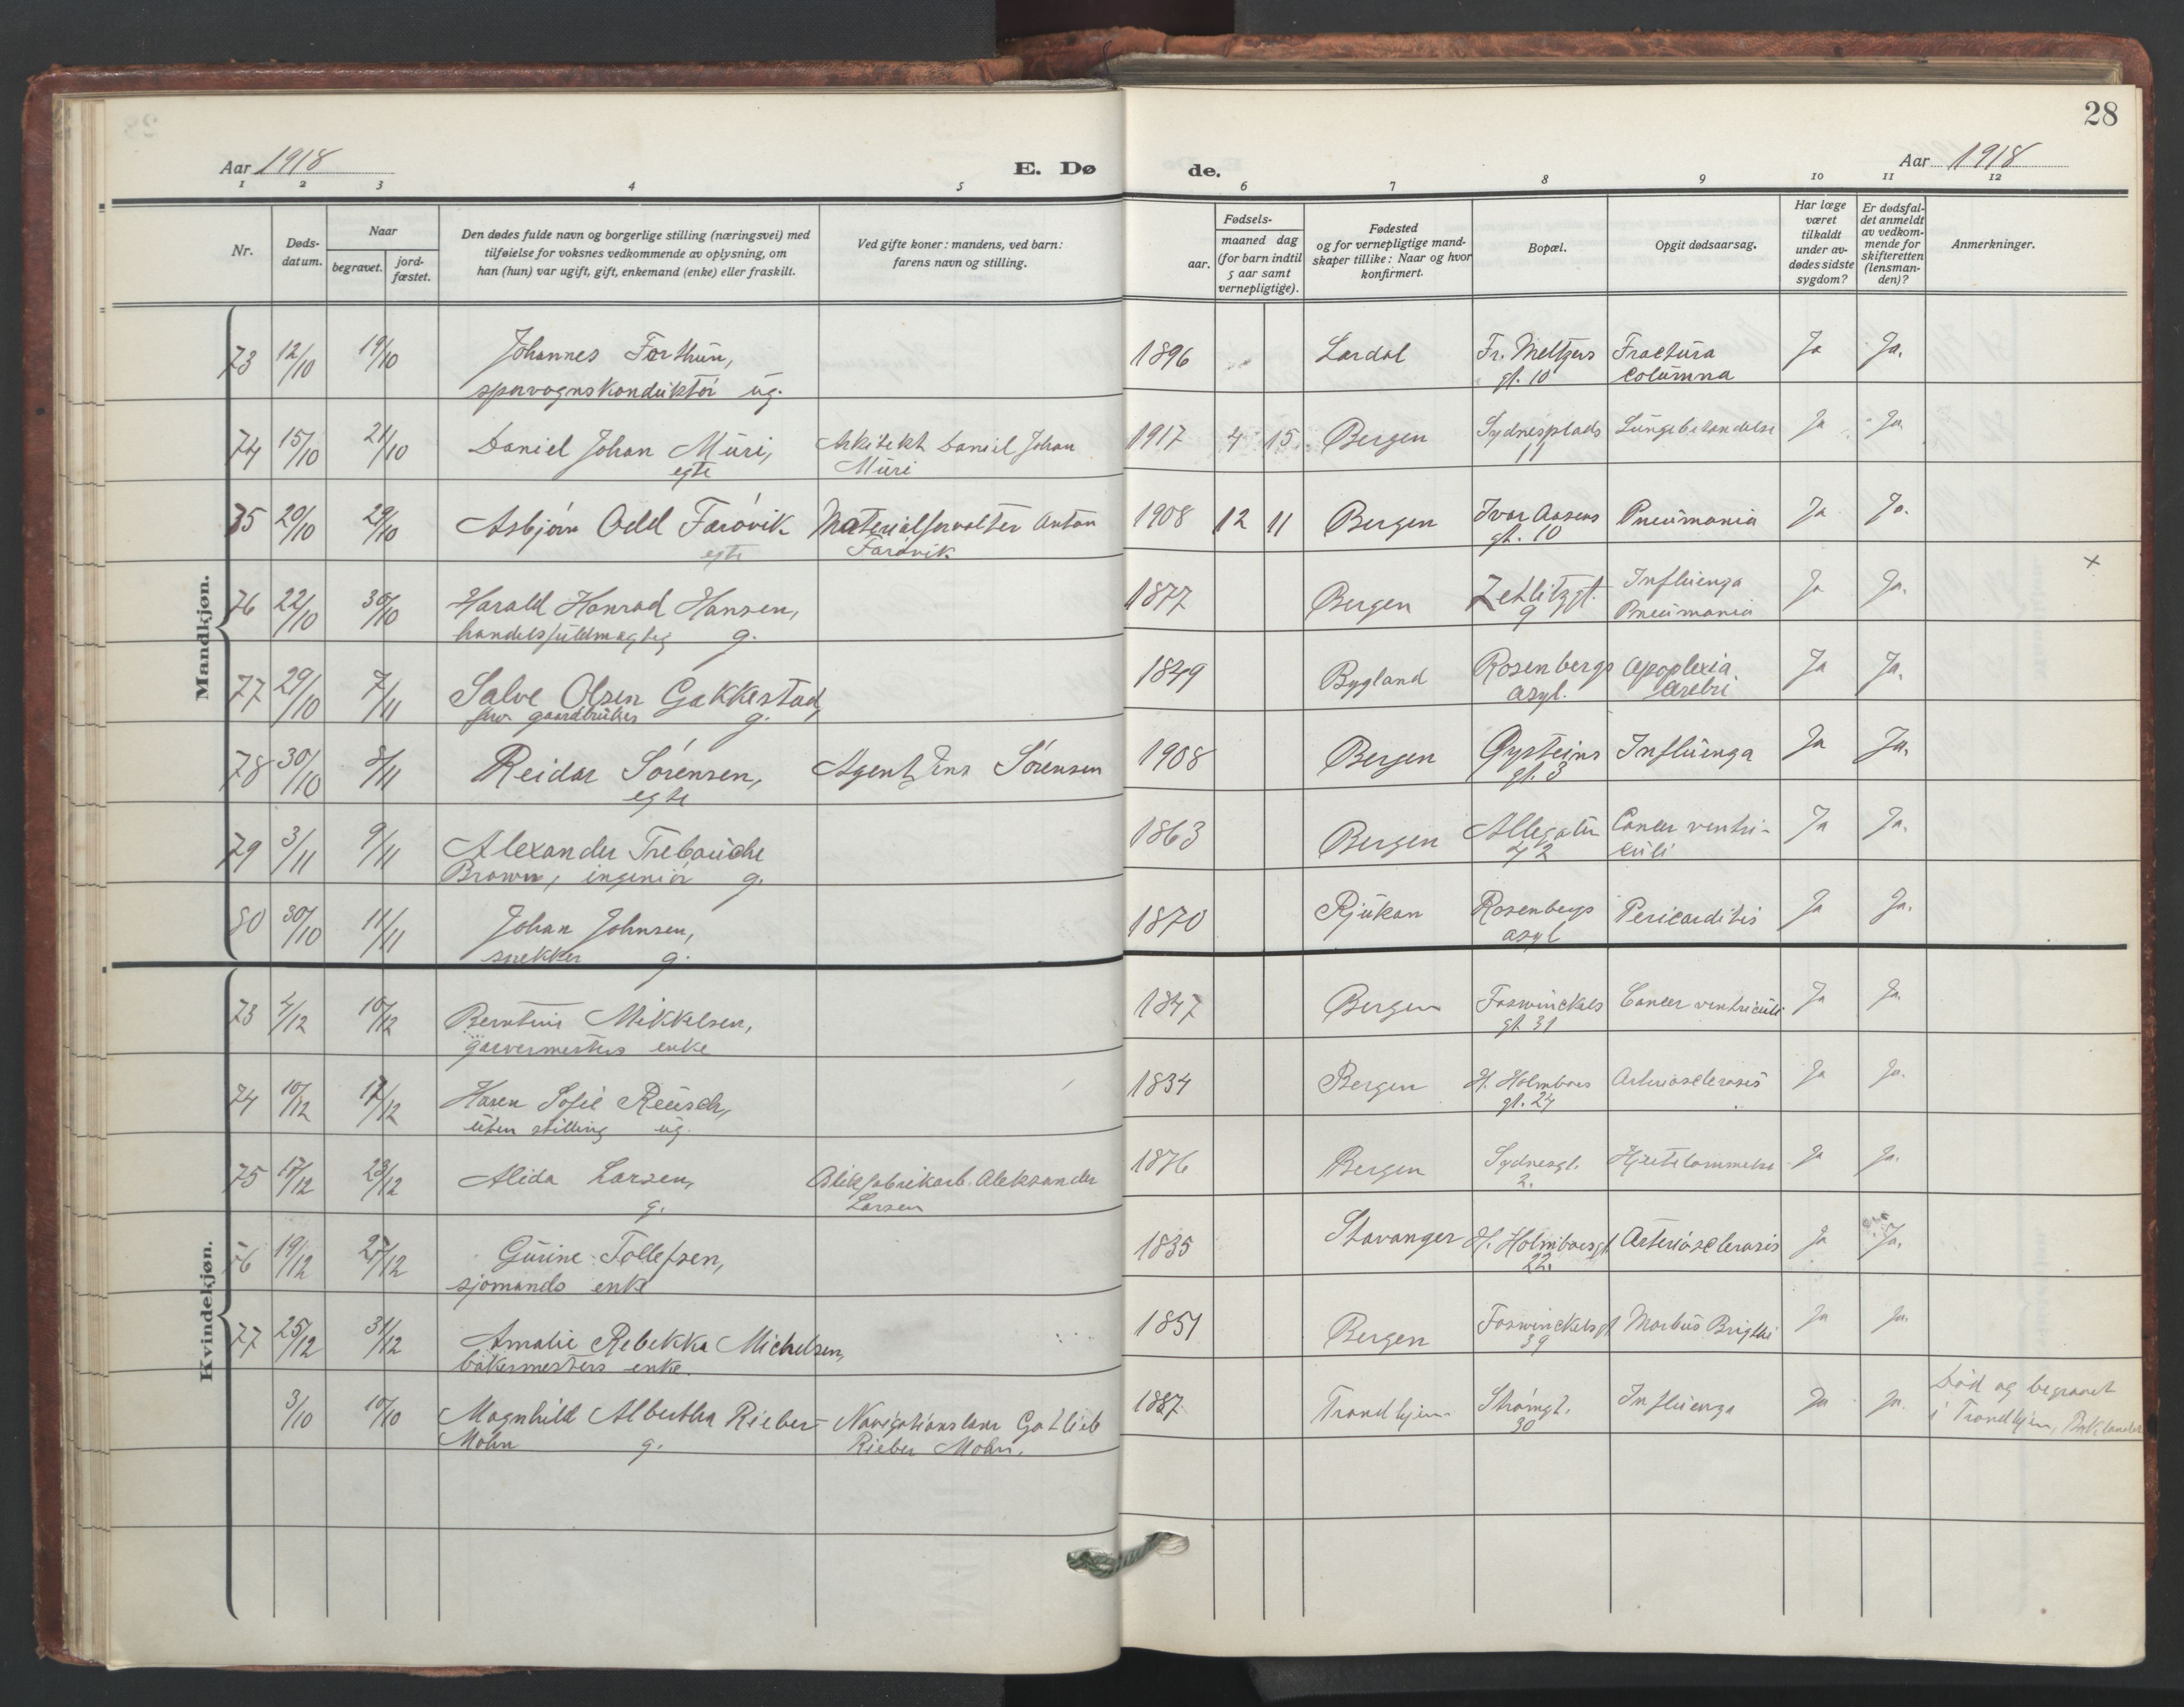 28
Aar 1918 E. Dø de. Aar 1918
1 2 3 4 5 6 7 8 9 10 11 12
Nr.
Døds-
datum.
Naar
begravet.
jord-
fæstet.
Den dødes fulde navn og borgerlige stilling (næringsvei) med
tilføielse for voksnes vedkommende av oplysning, om
han (hun) var ugift, gift, enkemand (enke) eller fraskilt.
Ved gifte koner: mandens, ved barn:
farens navn og stilling.
Fødsels-
aar.
maaned dag
(for barn indtil
5 aar samt
vernepligtige).
Fødested
og for vernepligtige mand-
skaper tillike: Naar og hvor
konfirmert.
Bopæl.
Opgit dødsaarsag.
Har læge
været
tilkaldt
under av-
dødes sidste
sygdom?
Er dødsfal-
det anmeldt
av vedkom-
mende for
skifteretten
(lensman-
den)?
Anmerkninger.
Mandkjøn.
73 12/10 19/10 Johannes Forthun, 1896 Lardal Fr. Meltzers Fractura Ja Ja.
sporvognskonduktør ug. gt. 10 Columna
74 15/10 21/10 Daniel Johan Müri, Arkitekt Daniel Johan 1917 4 15 Bergen Sydnesplads Lungebetændelse Ja Ja.
egte Müri 11
75 20/10 29/10 Asbjørn Odd Farövik Materialforvalter Anton 1908 12 11 Bergen Ivar Aasens Pneumonia Ja Ja.
egte Farövik gt. 10
×
76 22/10 30/10 Harald Konrad Hansen, 1877 Bergen Zetlitzgt. Influenza Ja Ja.
handelsfuldmægtig g. 9 Pneumonia
77 29/10 7/11 Salve Olsen Gakkestad, 1849 Bygland Rosenbergs Apoplexia Ja Ja.
fhv. gaardbruker g. asyl. cerebri
78 30/10 8/11 Reidar Sörensen, Agent Jens Sörensen 1908 Bergen Øysteins Influenza Ja Ja.
egte gt. 3
79 3/11 9/11 Alexander Trebouche 1863 Bergen Allegaten Cancer ventri- Ja Ja.
Brown, ingeniör g. 42 culi
80 30/10 11/11 Johan Johnsen, 1870 Rjukan Rosenbergs Pericarditis Ja Ja.
snekker g. asyl
Kvindekjøn.
73 4/12 10/12 Berntine Mikkelsen, 1847 Bergen Foswinckels Cancer ventriculi Ja Ja
garvermesters enke gt 31
74 10/12 17/12 Karen Sofie Reusch, 1834 Bergen H. Holmboes Arteriosclerosis Ja Ja.
uten stilling ug. gt. 24
75 17/12 23/12 Alida Larsen, Blikfabrikarb. Aleksander 1876 Bergen Sydnesgt. Hjertelammelse Ja Ja.
g. Larsen 2.
76 19/12 27/12 Gurine Tollefsen, 1835 Stavanger H. Holmboesgt Arteriosclerosis Ja Ja.
sjömands enke 22.
77 25/12 31/12 Amalie Rebekka Michelsen, 1851 Bergen Foswinckelsgt Morbus Brigthi Ja Ja.
bakermesters enke. 39
3/10 10/10 Magnhild Albertha Rieber- Navigationslærer Gotlieb 1887 Trondhjem Strömgt. Influenza Ja Ja Död og begravet
Mohn g. Rieber Mohn. 30 i Trondhjem, Baklandet